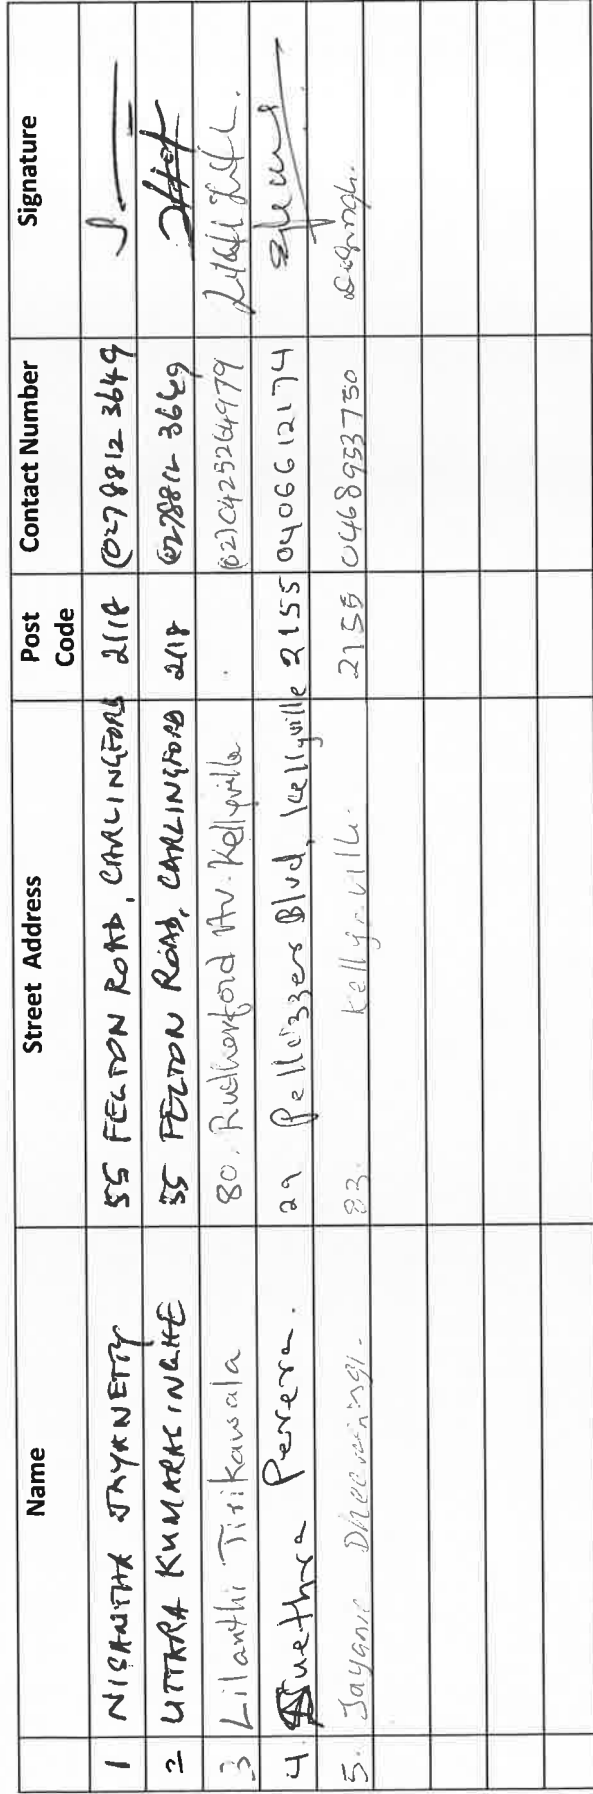 Name Street Address Post Code Contact Number Signature
1 NISHANTHA JAYANETTY 55 FELTON ROAD, CARLINGFORD 2118 (02) 8812 3649
2 UTTARA KUMARASINGHE 55 FELTON ROAD, CARLINGFORD 2118 (02) 8812 3649
3 Lilanthi Tirikawala 80, Rutherford Av. Kellyville (02) 0425264979
4. Suethra Perera. 29 Pellizzer Blvd, Kellyville 2155 0406612174
5. Jayani 83. Kellyville. 2155 0468953750